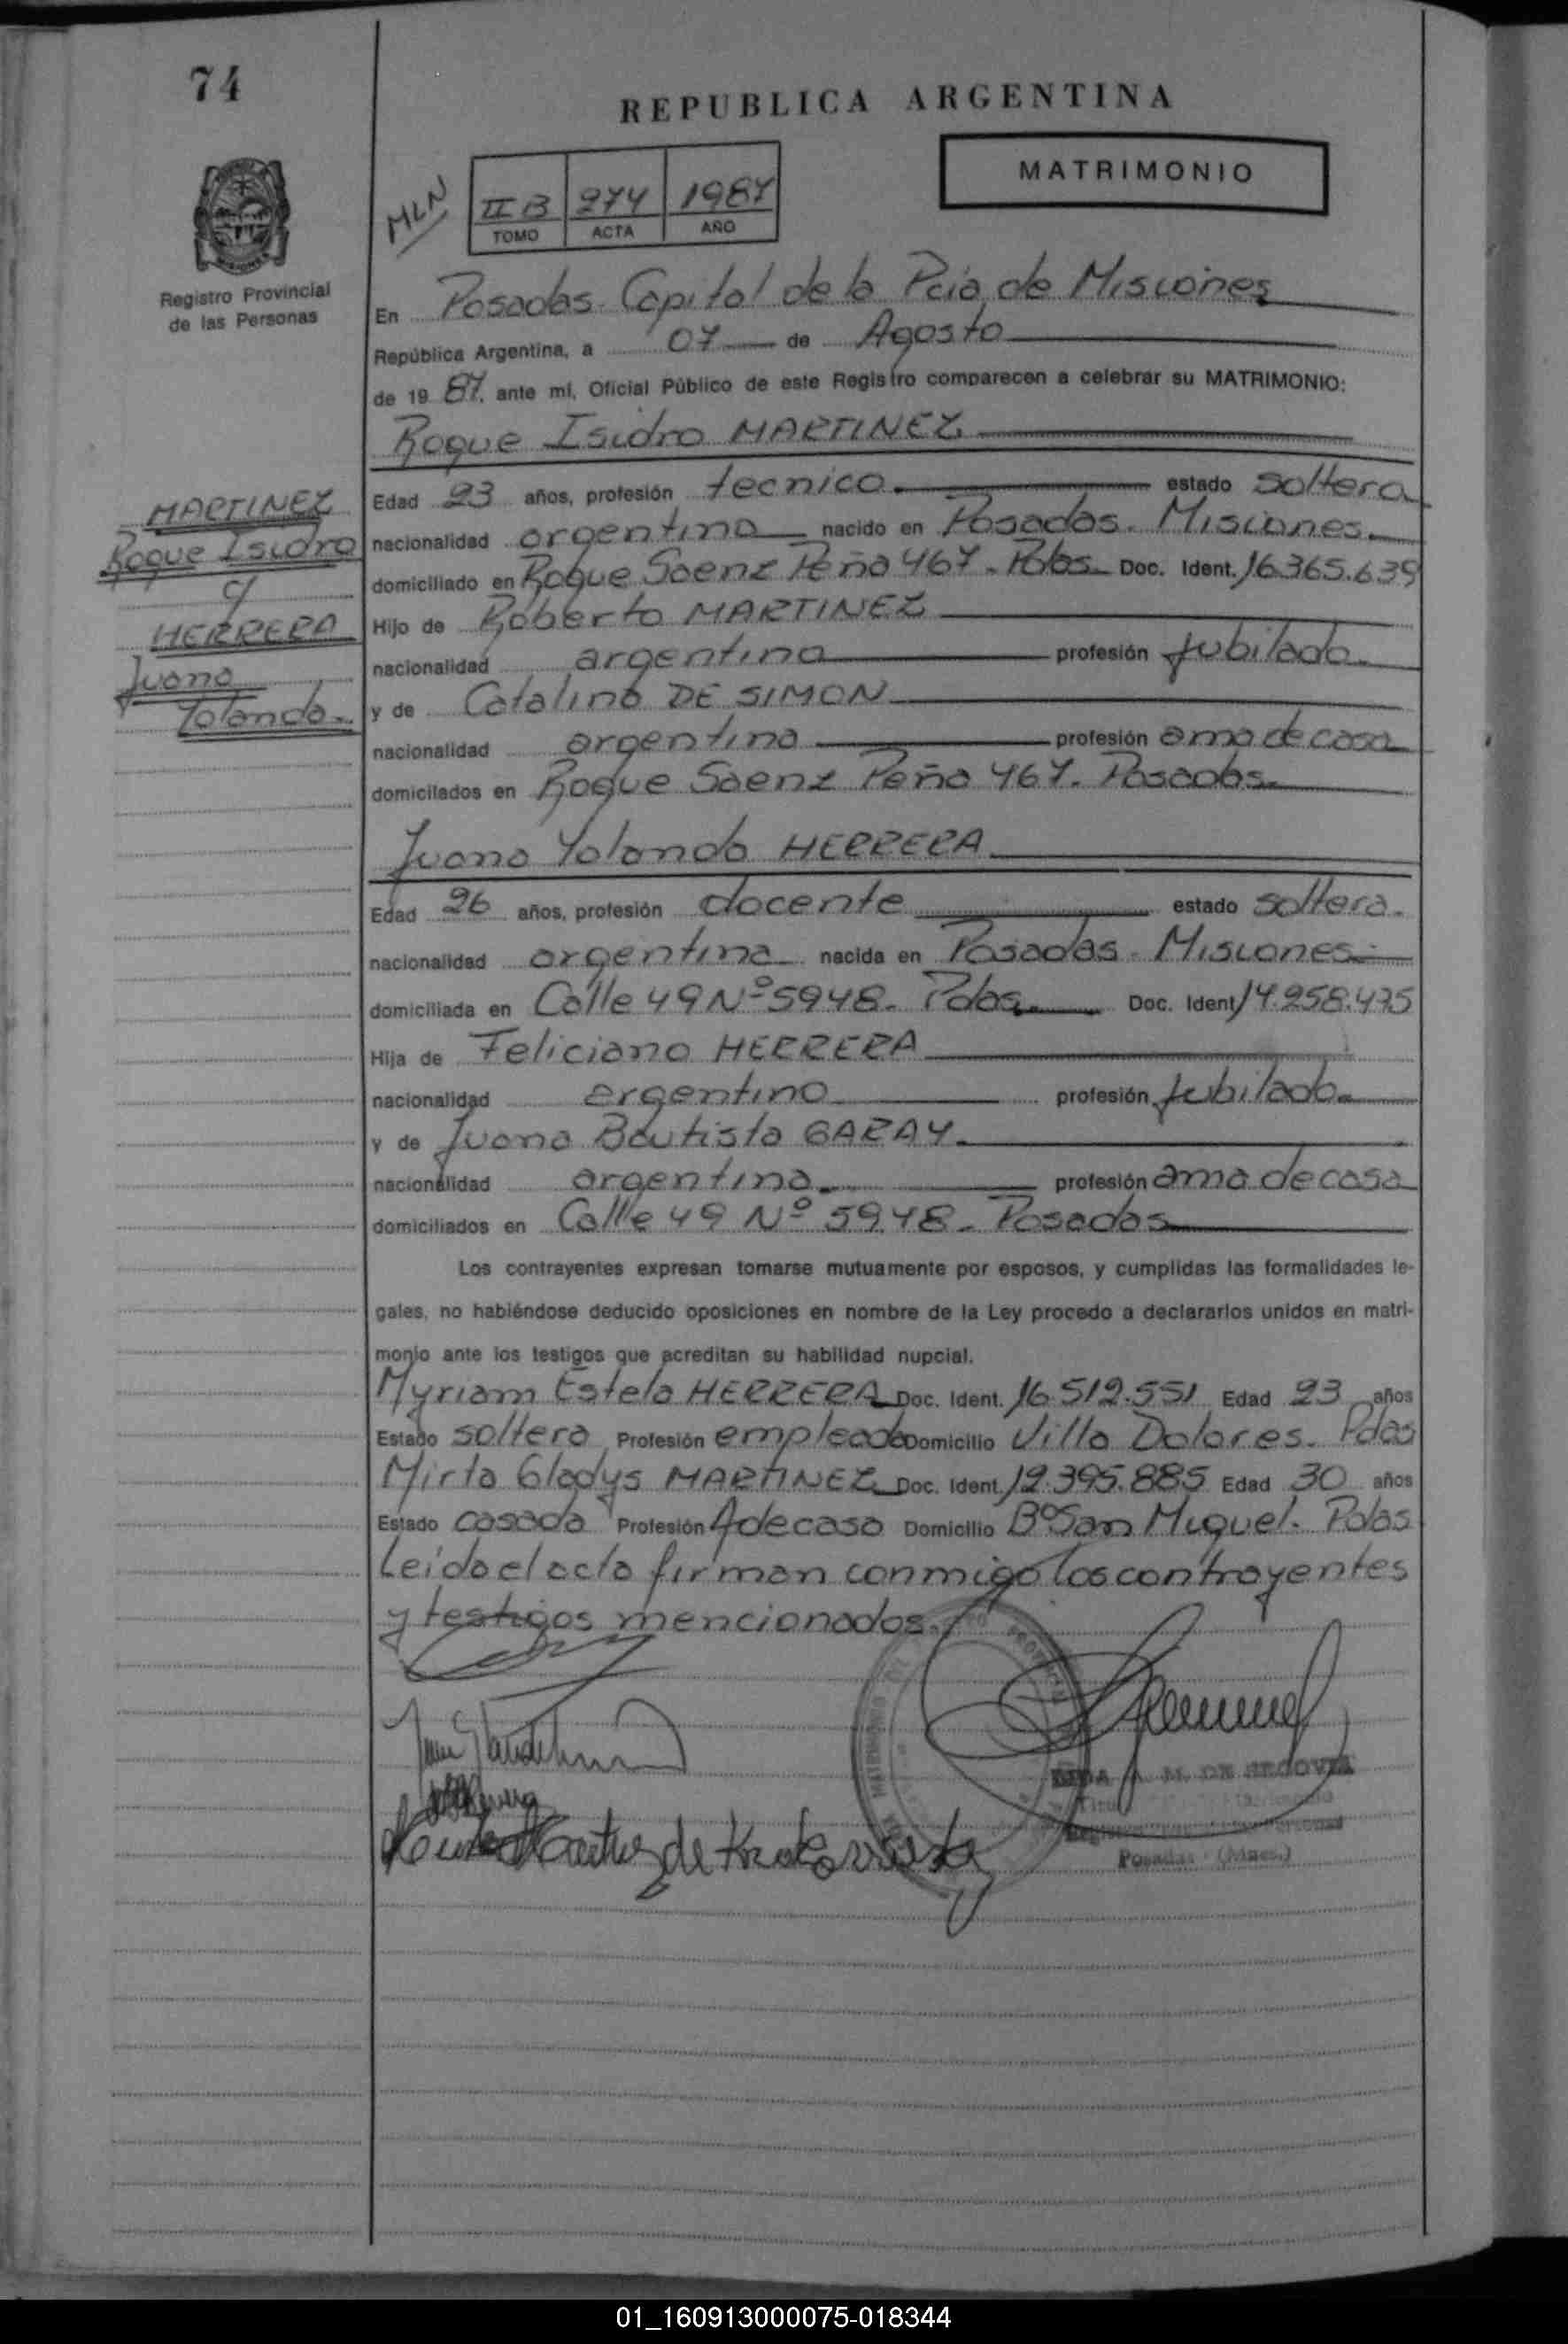 74
REPUBLICA ARGENTINA
MATRIMONIO
MLN
II B 274 1987
TOMO ACTA AÑO
Registro Provincial
de las Personas
En Posadas. Capital de la Pcia de Misiones
República Argentina, a 07 de Agosto
de 19 87, ante mí, Oficial Público de este Registro comparecen a celebrar su MATRIMONIO:
Roque Isidro MARTINEZ
MARTINEZ
Roque Isidro
c/
HERRERA
Juana
Yolanda.
Edad 23 años, profesión tecnico. estado soltera
nacionalidad argentina nacido en Posadas. Misiones.
domiciliado en Roque Saenz Peña 467. Pdas. Doc. Ident. 16.365.639
Hijo de Roberto MARTINEZ
nacionalidad argentina profesión jubilado.
y de Catalina DE SIMON
nacionalidad argentina profesión ama de casa
domicilados en Roque Saenz Peña 467. Posadas.
Juana Yolanda HERRERA
Edad 26 años, profesión docente estado soltera.
nacionalidad argentina nacida en Posadas. Misiones.
domiciliada en Calle 49 Nº 5948. Pdas. Doc. Ident 14.258.475
Hija de Feliciano HERRERA
nacionalidad argentino profesión jubilado.
y de Juana Bautista GARAY.
nacionalidad argentina. profesión ama de casa
domiciliados en Calle 49 Nº 5948. Posadas
Los contrayentes expresan tomarse mutuamente por esposos, y cumplidas las formalidades le-
gales, no habiéndose deducido oposiciones en nombre de la Ley procedo a declararlos unidos en matri-
monio ante los testigos que acreditan su habilidad nupcial.
Myriam Estela HERRERA Doc. Ident. 16.512.551 Edad 23 años
Estado soltera Profesión empleada Domicilio Villa Dolores. Pdas
Mirta Gladys MARTINEZ Doc. Ident. 12.395.885 Edad 30 años
Estado casada Profesión A de casa Domicilio Bº San Miguel. Pdas
Leida el acta firman conmigo los contrayentes
y testigos mencionados.
M. DE SEGOVIA
Posadas (Mnes.)
01_160913000075-018344